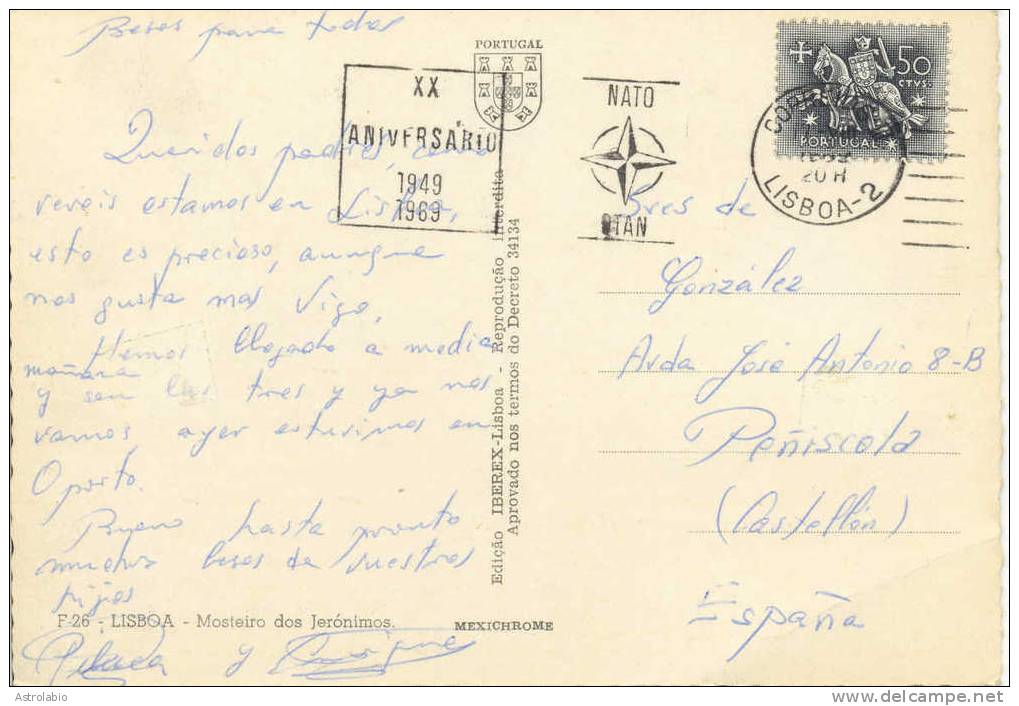 Besos para todos
PORTUGAL
XX
ANIVERSÁRIO
1949
1969
NATO
OTAN
50
CTVS.
PORTUGAL
CORREIOS
20 H
LISBOA-2
Queridos padres, como
vereis estamos en Lisboa,
esto es precioso, aunque
nos gusta mas Vigo,
Hemos llegado a media
mañana
y son las tres y ya nos
vamos, ayer estuvimos en
Oporto.
Bueno hasta pronto
muchos besos de vuestros
hijos
y Enrique
Edição IBEREX-Lisboa - Reprodução interdita
Aprovado nos termos do Decreto 34134
Sres de
González
Avda José Antonio 8-B
Peñiscola
(Castellón)
España
F-26 - LISBOA - Mosteiro dos Jerónimos.
MEXICHROME
Astrolabio
www.delcampe.net